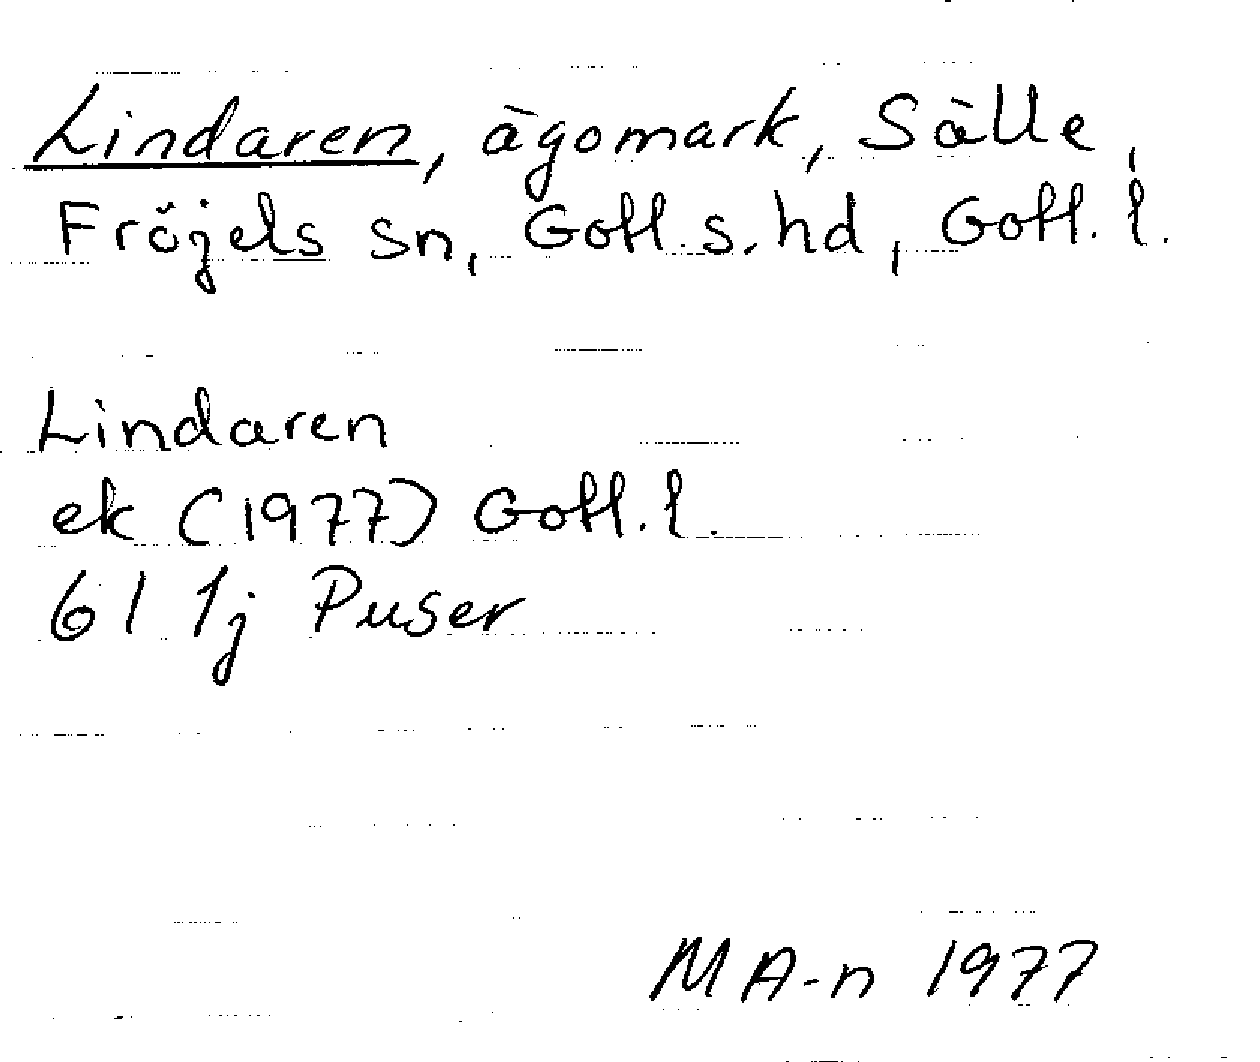 Lindaren, ägomark, Sälle,
Fröjels sn, Gotl. s. hd, Gotl. l.
Lindaren
ek (1977) Gotl. l.
6I 1j Puser
MA-n 1977